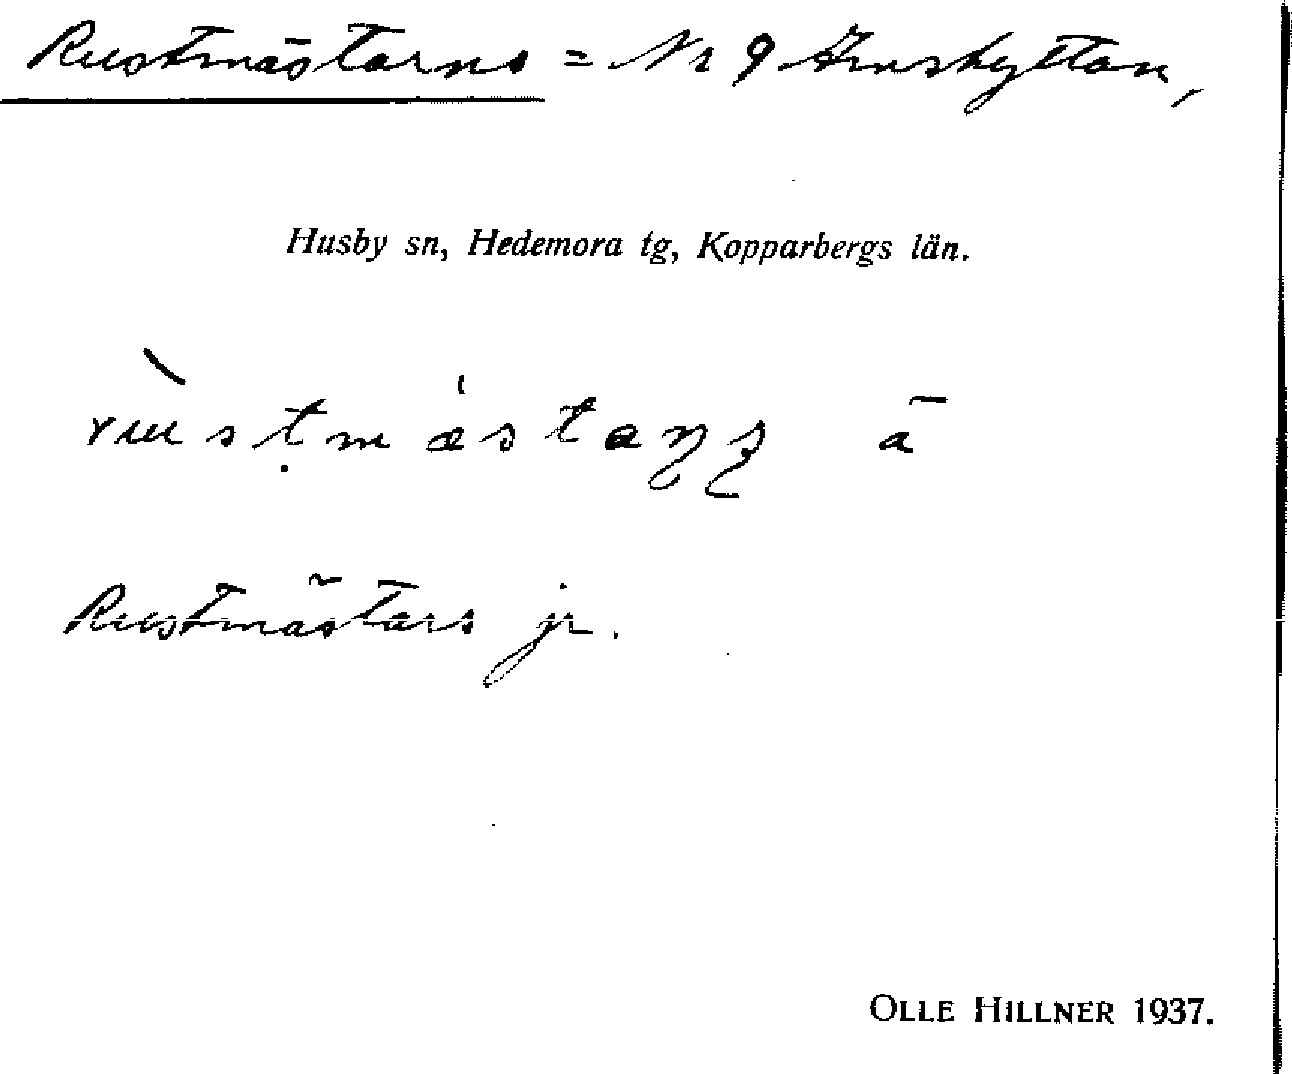 Rustmästarns = Nr 9 Arnshyttan,
Husby sn, Hedemora tg, Kopparbergs län.
Rustmästars jr.
OLLE HILLNER 1937.